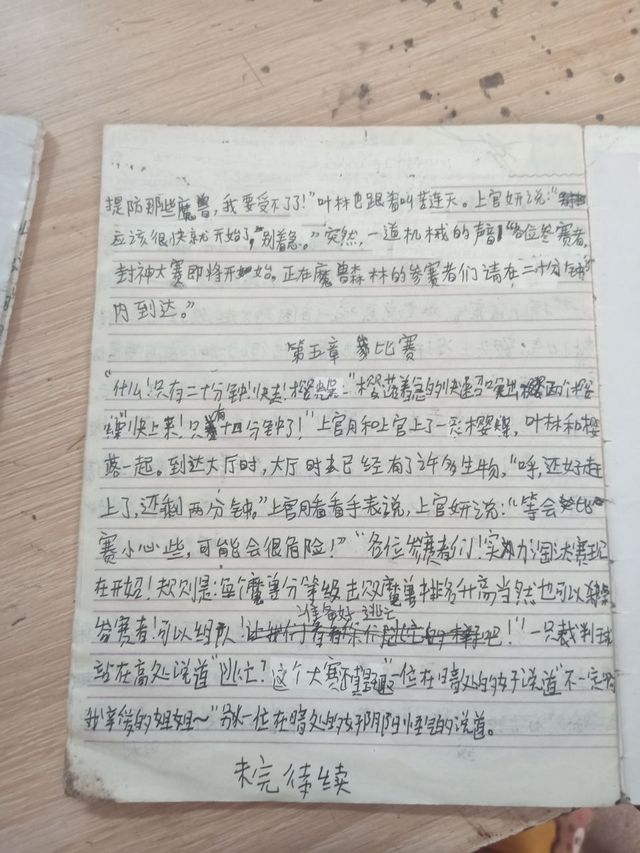 ....
提防那些魔兽，我要受不了了！"叶林也跟着叫苦连天。上官妍说："
应该很快就开始了，别着急。"突然，一道机械的声音"各位参赛者，
封神大赛即将开始。正在魔兽森林的参赛者们请在二十分钟
内到达。"
第五章 比赛
"什么！只有二十分钟！快走！樱蝶-"樱落着急的快速召唤出两个樱
蝶"快上来！只有十四分钟了！"上官月和上官上了一只樱蝶，叶林和樱
落一起。到达大厅时，大厅时去已经有了许多生物，"呼，还好赶
上了，还剩两分钟。"上官月看看手表说，上官妍说："等会比
赛小心些，可能会很危险！""各位参赛者们！实力淘汰赛现
在开始！规则是：每个魔兽分等级击败魔兽排名升高当然也可以
参赛者！可以组队！准备好逃亡吧！"一只裁判
站在高处说道"逃亡？这个大赛还望"一位在暗处的女子说道"不一定哟
我亲爱的姐姐～"另一位在暗处的女阴阳怪气的说道。
未完待续